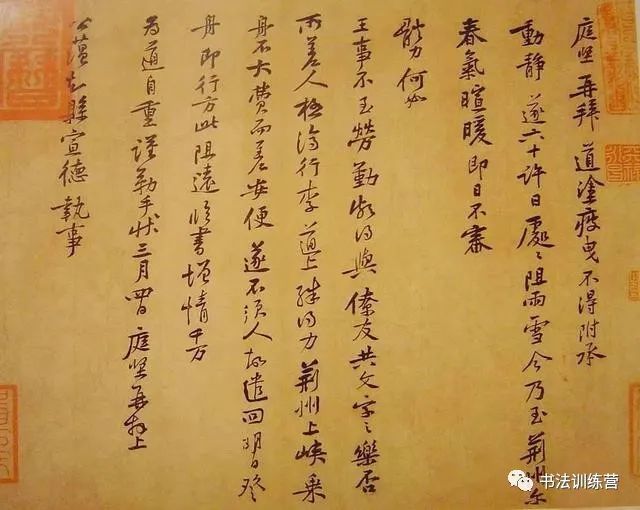 庭坚再拜 道塗疲曳 不得附承
動靜 遂六十許日 處〻阻雨雪 今乃至荆州尔
春氣暄暖 即日不審
體力何如
王事不至勞勤 能得與僚友共文字之樂否
所差人極濟行李 道上殊得力 荆州上峽乘
舟不大費而差安便 遂不須人 故遣回 明日登
舟即行 方此阻遠 臨書增情 千万
為道自重 謹勒手狀 三月四日 庭坚再拜上
公藴知縣宣德 執事
书法训练营